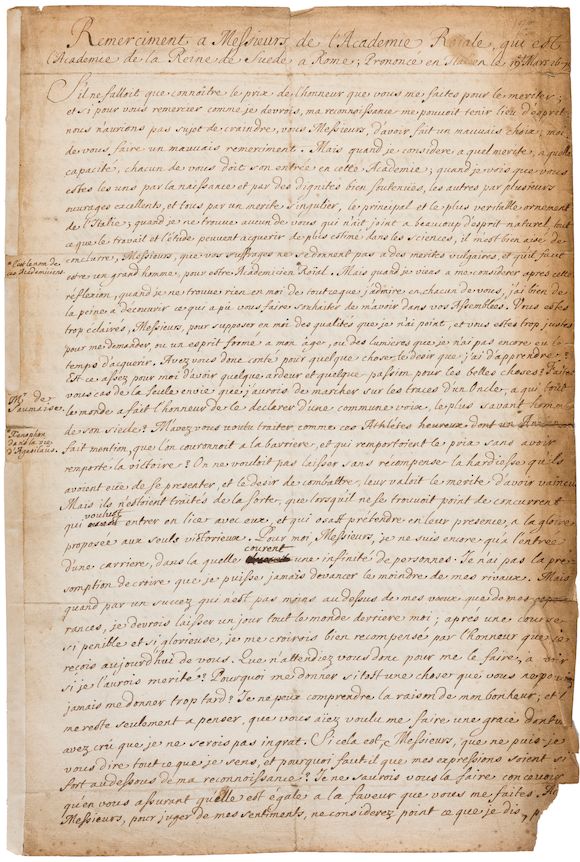 Remerciment a Messieurs de l'Academie Roiale, qui est
l'Academie de la Reine de Suede a Rome; Prononcé en Italien le 19e Mars
S'il ne falloit que connoître le prix de l'honneur que vous me faites pour le meriter;
et si pour vous remercier comme je devrois, ma reconnoissance me pouvoit tenir lieu d'esprit,
nous n'aurions pas sujet de craindre, vous, Messieurs, d'avoir fait un mauvais choix; moi,
de vous faire un mauvais remerciment. Mais quand je considere a quel merite, a quelle
capacité, chacun de vous doit son entrée en cette Academie; quand je vois que vous
estes les uns par la naissance et par des dignites bien soutenües, les autres par plusieurs
ouvrages excellents, et tous par un merite singulier, le principal et le plus veritable ornement
de l'Italie; quand je ne trouve aucun de vous qui n'ait joint a beaucoup d'esprit naturel, tout
ce que le travail et l'étude peuvent acquerir de plus estimé dans les sciences, il m'est bien aisé de
conclurre, Messieurs, que vos suffrages ne se donnent pas a des merites vulgaires, et qu'il faut
estre un grand homme, pour estre Academicien Roial. Mais quand je viens a me considerer apres cette
* C'est le nom de
ces Academiciens
réflexion, quand je ne trouve rien en moi de tout ce que j'admire en chacun de vous, j'ai bien de
la peine a decouvrir ce qui a pü vous faire souhaiter de m'avoir dans vos Assemblées. Vous estes
trop éclairés, Messieurs, pour supposer en moi des qualités que je n'ai point, et vous estes trop justes
pour me demander, ou un esprit formé a mon âge, ou des lumieres que je n'ai pas encore eu le
temps d'acquerir. Avez vous donc conté pour quelque chose, le desir que j'ai d'apprendre?
Est ce assez pour moi d'avoir quelque ardeur et quelque passion pour les belles choses? Faites
vous cas de la seule envie que j'aurois de marcher sur les traces d'un Oncle, a qui tout
Mr. de
Saumaise.
le monde a fait l'honneur de le declarer d'une commune voix, le plus savant homme
de son siecle? M'avez vous voulu traiter comme ces Athlétes heureux dont un
Xenophon
dans la vie
d'Agesilaüs.
fait mention, que l'on couronnoit a la barriere, et qui remportoient le prix sans avoir
remporté la victoire? On ne vouloit pas laisser sans recompense la hardiesse qu'ils
avoient eüe de se presenter, et le desir de combattre, leur valoit le merite d'avoir vaincu
Mais ils n'estoient traités de la sorte, que lorsqu'il ne se trouvoit point de concurrent
qui voulust entrer en lice avec eux, et qui osast prétendre en leur presence, a la gloire
proposée aux seuls victorieux. Pour moi, Messieurs, je ne suis encore qu'a l'entrée
d'une carriere, dans la quelle courent une infinité de personnes. Je n'ai pas la pre
somption de croire que je puisse jamais devancer le moindre de mes rivaux. Mais
quand par un succez qui n'est pas moins au dessus de mes voeux que de mes
rances, je devrois laisser un jour tout le monde derriere moi; aprés une course
si penible et si glorieuse, je me croirois bien recompensé par l'honneur que je
reçois aujourd'hui de vous. Que n'attendiez vous donc pour me le faire, a voir
si je l'aurois merité? Pourquoi me donner si tost une chose que vous ne pouviez
jamais me donner trop tard? Je ne peux comprendre la raison de mon bonheur; et il
me reste seulement a penser, que vous aiez voulu me faire une grace dont vous
avez crû que je ne serois pas ingrat. Si cela est, Messieurs, que ne puis-je
vous dire tout ce que je sens, et pourquoi faut il que mes expressions soient si
fort au dessous de ma reconnoissance? Je ne saurois vous la faire concevoir
qu'en vous assurant qu'elle est égale a la faveur que vous me faites.
Messieurs, pour juger de mes sentiments, ne considerez point ce que je dis,